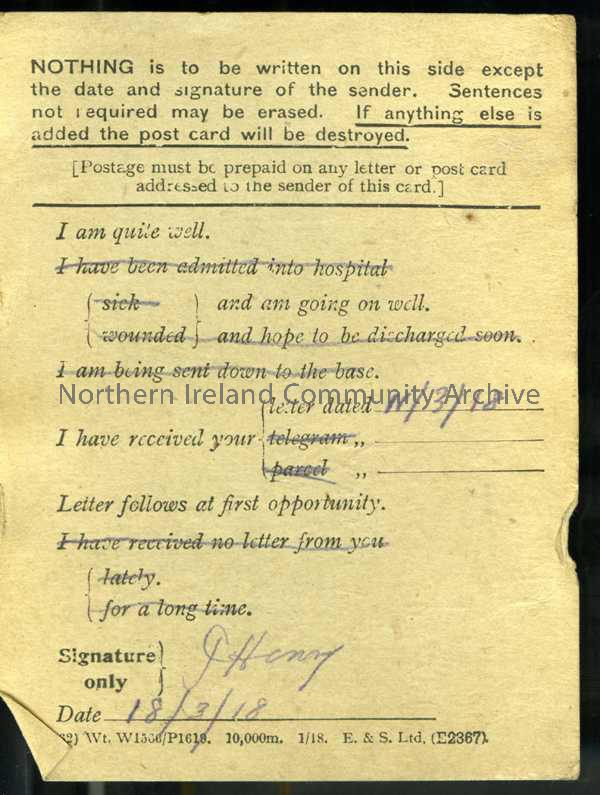 NOTHING is to be written on this side except
the date and signature of the sender. Sentences
not required may be erased. If anything else is
added the post card will be destroyed.
[Postage must be prepaid on any letter or post card
addressed to the sender of this card.]
I am quite well.
I have been admitted into hospital
sick } and am going on well.
wounded } and hope to be discharged soon.
I am being sent down to the base.
Northern Ireland Community Archive
letter dated 13/18
I have received your { telegram ,,
parcel ,,
Letter follows at first opportunity.
I have received no letter from you
{ lately.
for a long time.
Signature }
only J Henry
Date 18/3/18
Wt. W1566/P1619. 10,000m. 1/18. E. & S. Ltd, (E2367).